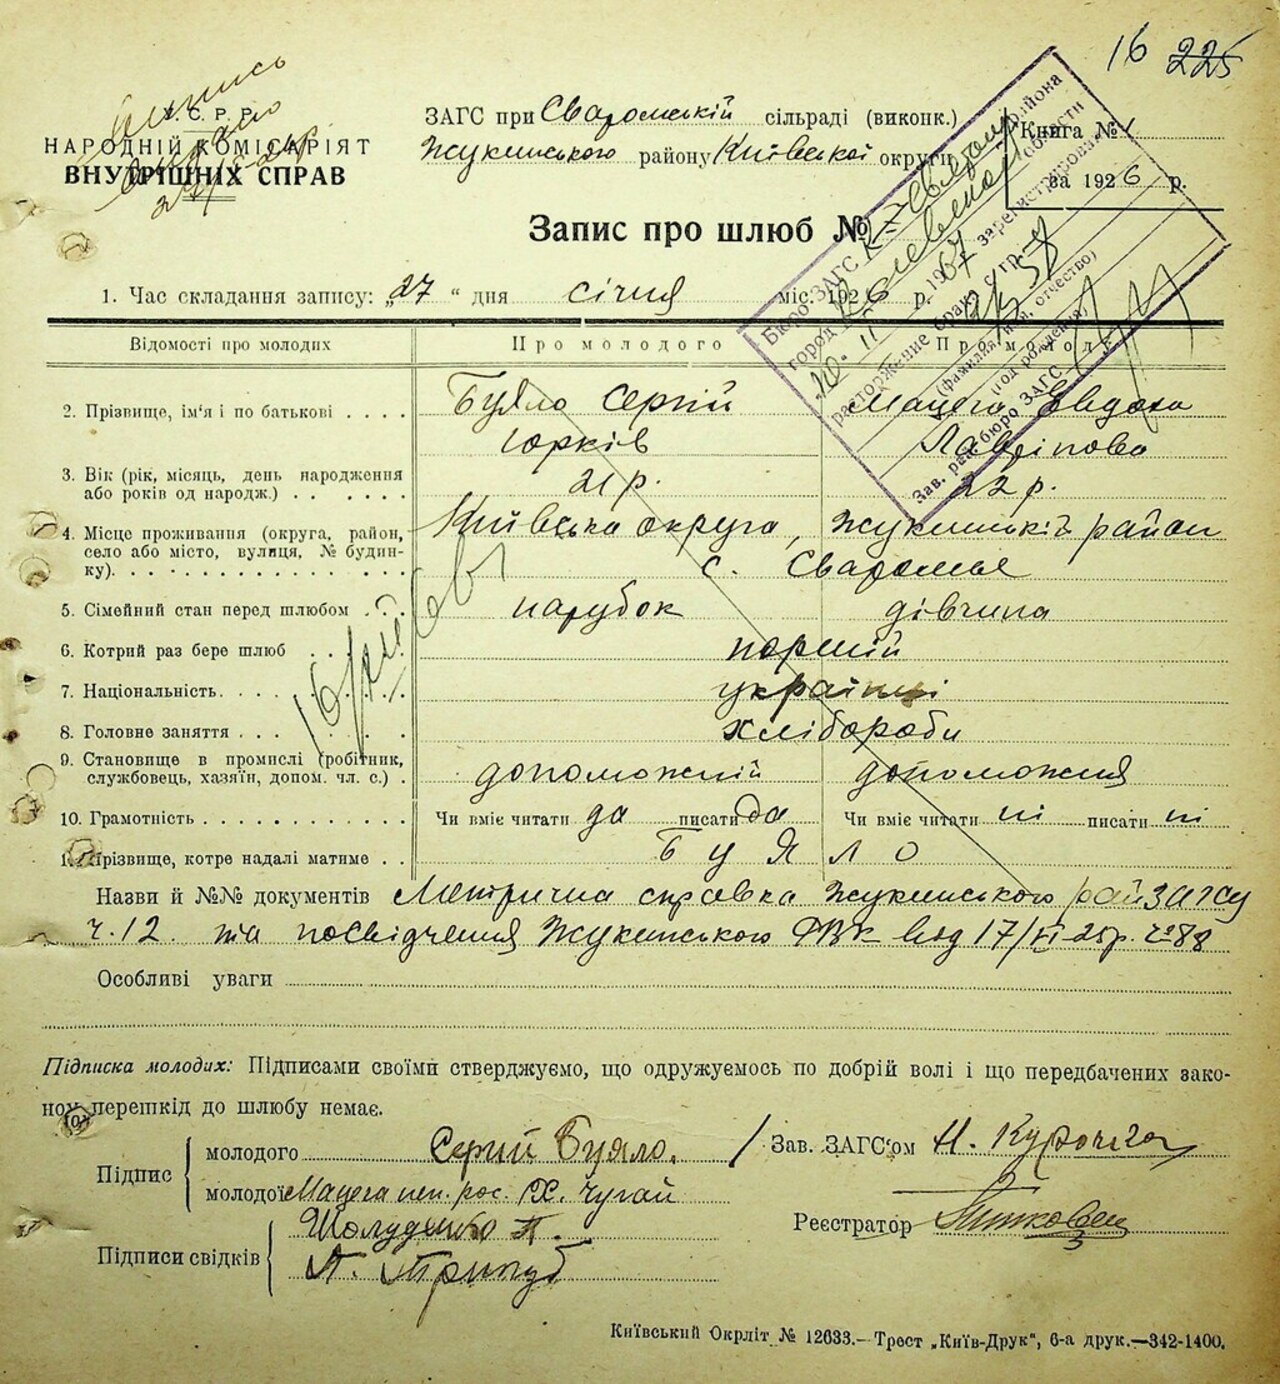 16 225
У.С.Р.Р.
НАРОДНІЙ КОМІСАРІЯТ
ВНУТРІШНІХ СПРАВ
ЗАГС при Сваромській сільраді (виконк.)
Жукинського району Київської округи
Книга № 1
за 1926 р.
Запис про шлюб №
1. Час складання запису: „27“ дня січня міс. 1926 р.
Бюро ЗАГС
город
расторжение брака с гр.
(фамилия, имя, отчество)
(год рождения)
Зав. рай бюро ЗАГС
Відомості про молодих Про молодого Про молоду
2. Прізвище, ім'я і по батькові . . . . Буяло Сергій Мацега Євдоха
Юрків Лавріпова
3. Вік (рік, місяць, день народження
або років од народж.) . . . . . . 21 р. 22 р.
4. Місце проживання (округа, район, Київська округа, Жукинський район
село або місто, вулиця, № будин-
ку). . . . . . . . . . . . . . с. Сваромья
5. Сімейний стан перед шлюбом . . . парубок дівчина
6. Котрий раз бере шлюб . . . . перший
7. Національність. . . . . . . . українці
8. Головне заняття . . . . . . . хлібороби
9. Становище в промислі (робітник,
службовець, хазяїн, допом. чл. с.) . допоможній допоможня
10. Грамотність . . . . . . . . . . . . Чи вміє читати да писати да Чи вміє читати ні писати ні
11. Прізвище, котре надалі матиме . . Буяло
Назви й №№ документів Метрична справка Жукинського райЗАГСу
ч. 12. та посвідчення Жукинського РВК від 17/VI-25р. № 88
Особливі уваги
Підписка молодих: Підписами своїми стверджуємо, що одружуємось по добрій волі і що передбачених зако-
ном перешкід до шлюбу немає.
Підпис
молодого Сергій Буяло.
молодої Мацега неп. рос. Х. Чугай
Зав. ЗАГС'ом Н. Курочка
Реєстратор
Підписи свідків
Шолудченко П.
А. Трипуб
Київський Окрліт № 12633.— Трест „Київ-Друк", 6-а друк.—342-1400.